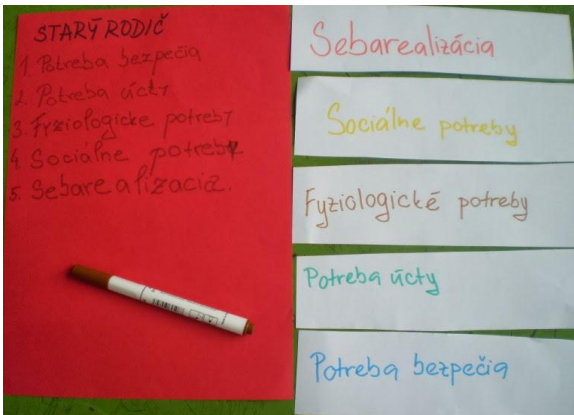 STARÝ RODIČ
1. Potreba bezpečia
2. Potreba úcty
3. Fyziologicke potreby
4. Sociálne potreby
5. Sebarealizacia.
Sebarealizácia
Sociálne potreby
Fyziologické potreby
Potreba úcty
Potreba bezpečia